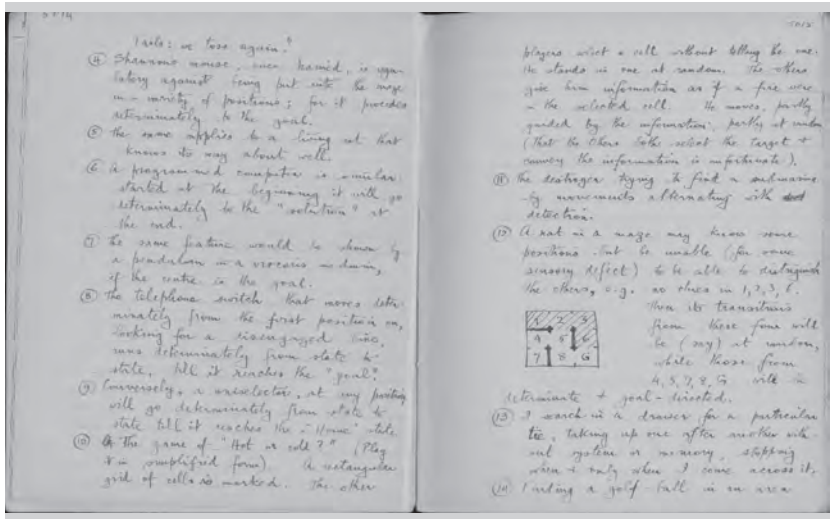 5074
Tails: we toss again."
④ Shannon's mouse, once learned, is regu-
latory against being put into the maze
in a variety of positions; for it proceeds
determinately to the goal.
⑤ The same applies to a living rat that
knows its way about well.
⑥ A programmed computer is similar:
started at the beginning it will go
determinately to the "solution" at
the end.
⑦ The same feature would be shown by
a pendulum in a viscous medium,
if the centre is the goal.
⑧ The telephone switch that moves deter-
minately from the first position on,
looking for a disengaged line,
runs determinately from state to
state, till it reaches the "goal".
⑨ Conversely, a uniselector, at any position
will go determinately from state to
state till it reaches the "Home" state
⑩ The game of "Hot or cold?" (Play
it in simplified form). A rectangular
grid of cells is marked. The other
5075
players select a cell without telling the one.
He stands in one at random. The others
give him information as if a fire were
in the selected cell. He moves, partly
guided by the information, partly at random
(That the others both select the target +
convey the information is unfortunate).
⑪ The destroyer trying to find a submarine
by movements alternating with
detection.
⑫ A rat in a maze may know some
positions but be unable (for some
sensory defect) to be able to distinguish
the others, e.g. no clues in 1, 2, 3, 6.
1 2 3
4 5 6
7 8 G
Then its transitions
from these four will
be (say) at random,
while those from
4, 5, 7, 8, G will be
determinate + goal-directed.
⑬ I search in a drawer for a particular
tie, taking up one after another with-
out system or memory, stopping
when + only when I come across it.
⑭ Putting a golf ball in an area